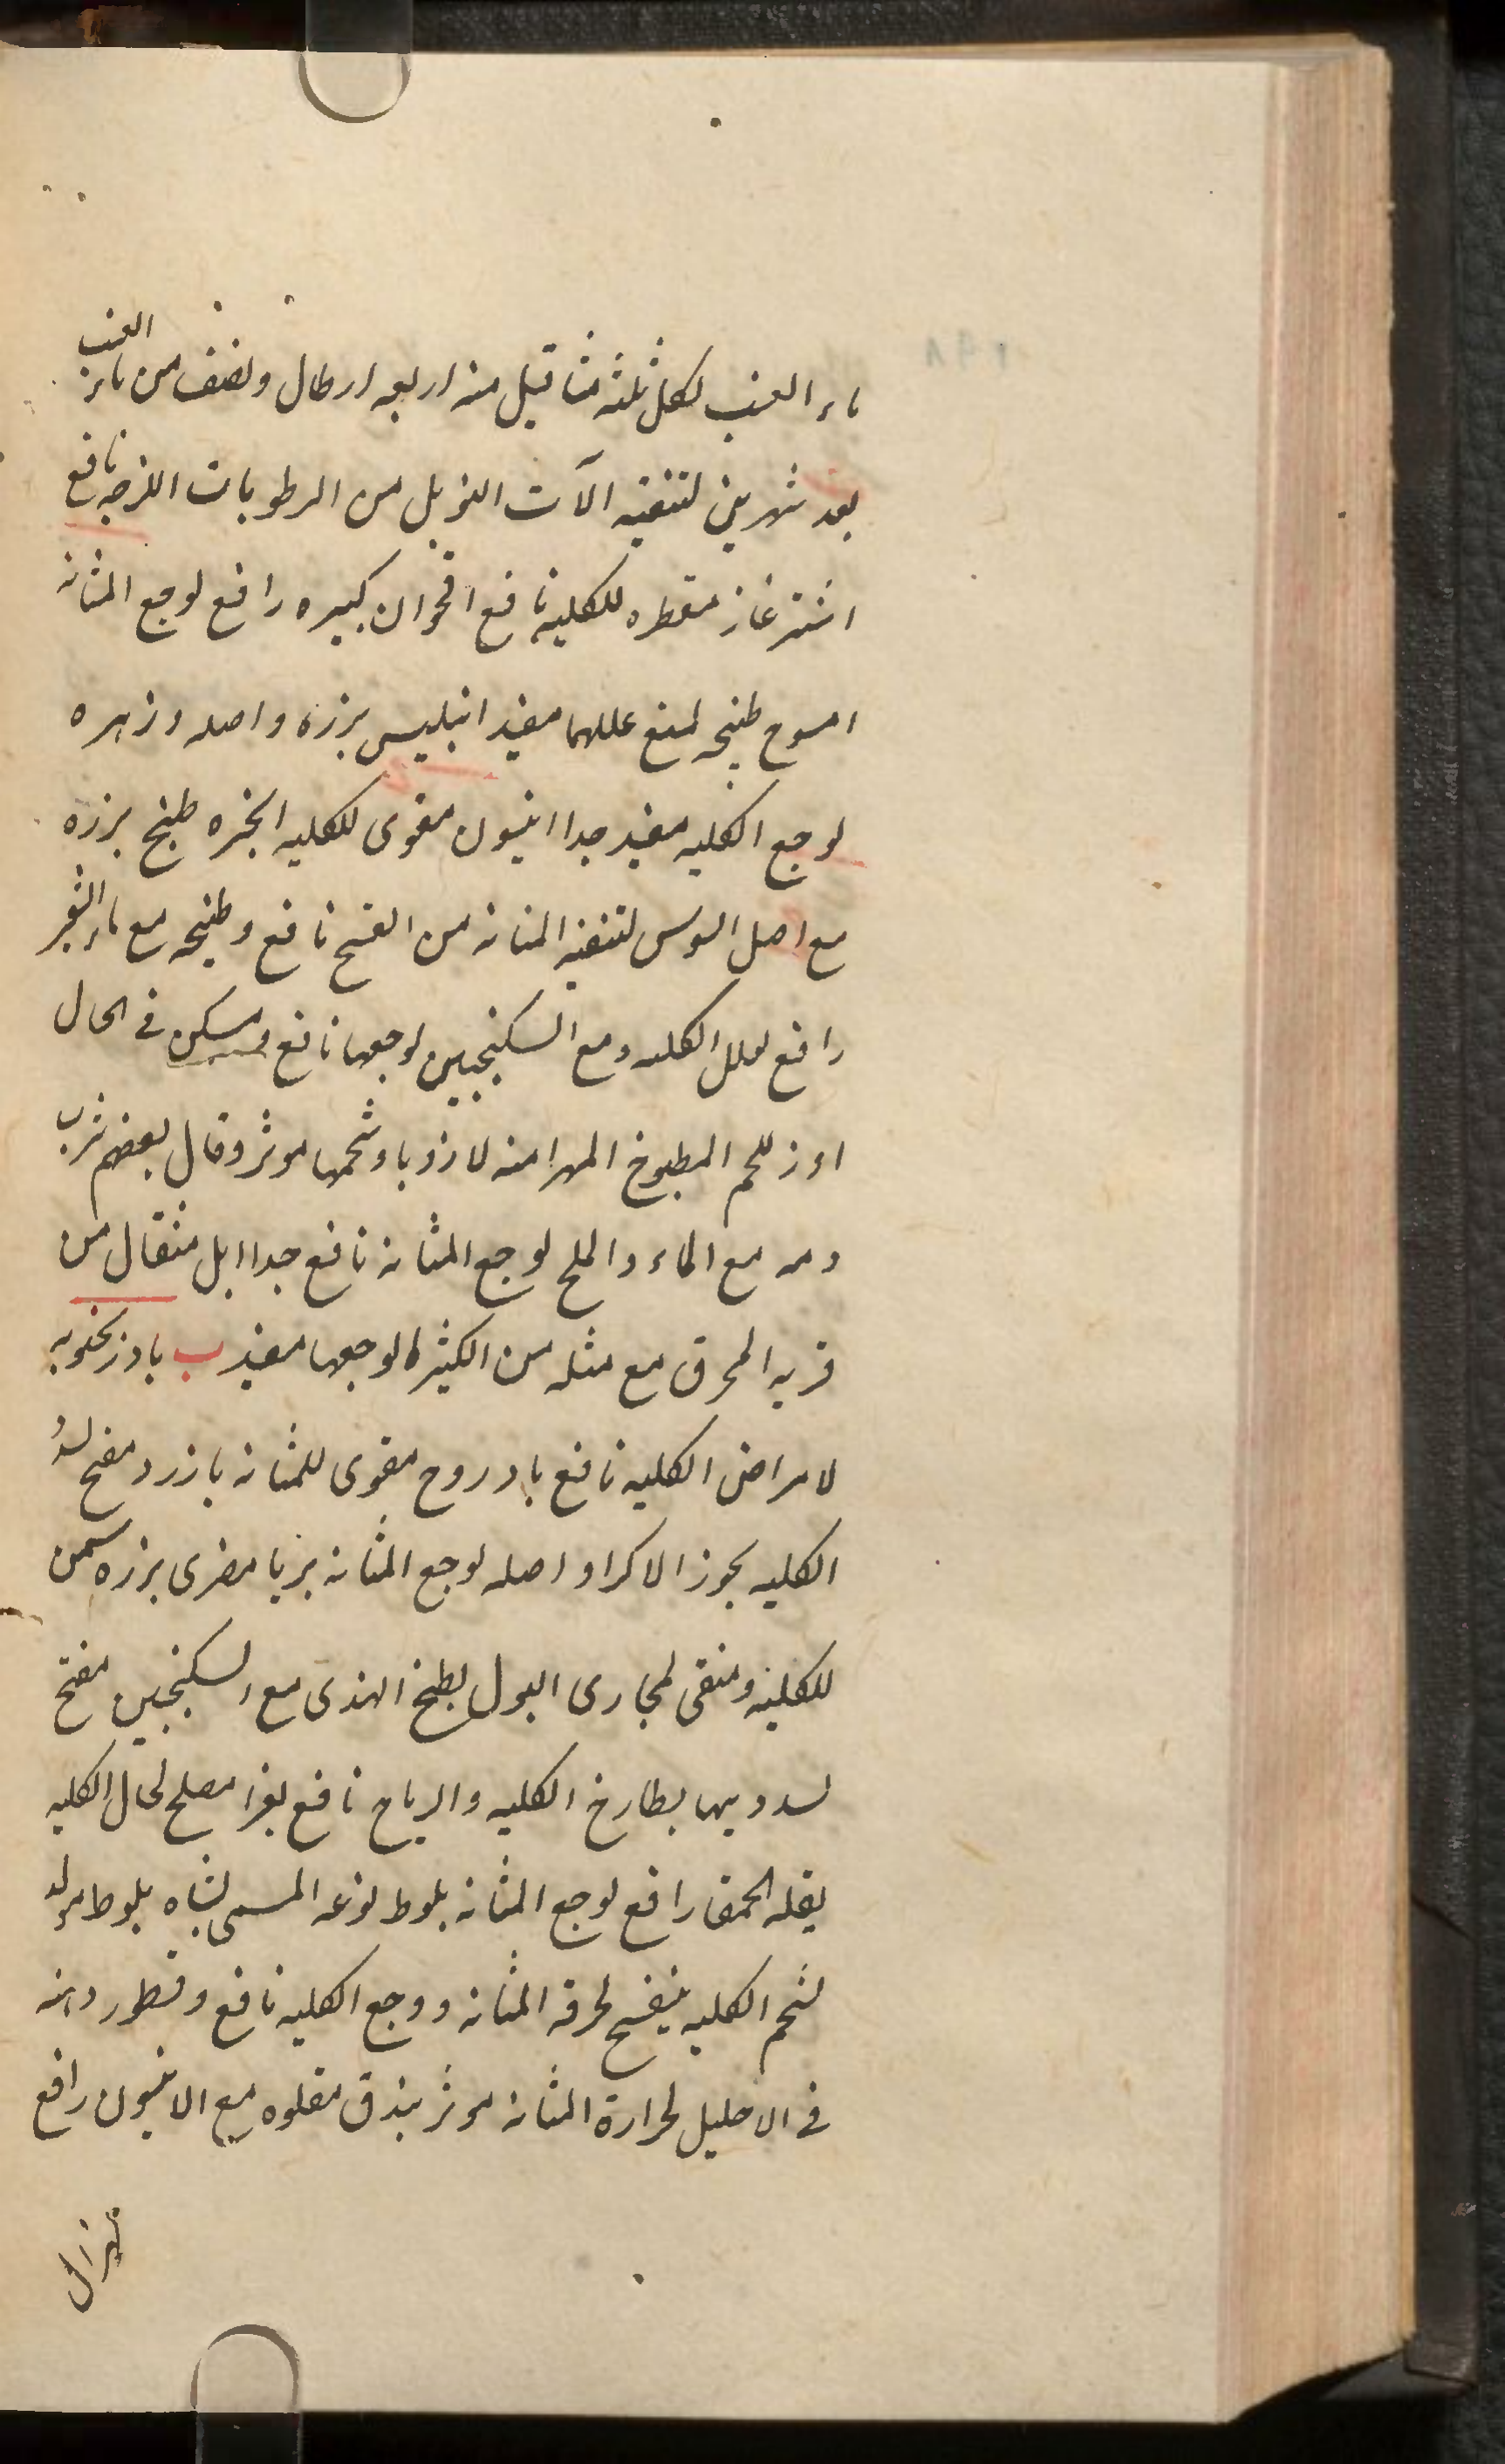 ماء العنب لكل ثلثه مثاقيل منه اربعه ارطال ونصف من ماء العنب
بعد شهرين لتنقيه الآت البول من الرطوبات اللزجه نافع
اشترغاز مقطره للكليه نافع اقحوان كبيره رافع لوجع المثانه
امسوح طبيخه لمنع عللهما مفيد انبليس بزره واصله وزهره
لوجع الكليه مفيد جدا انيسون مقوى للكليه انجره طبخ بزره
مع اصل السوس لتنقيه المثانه من القيح نافع وطبيخه مع ماء الشعير
رافع لعلل الكليه ومع السكنجبين لوجعها نافع ومسكن فى الحال
اوز للحم المطبوخ المهرا منه لا زوبا وشحمها موثر وقال بعضهم شرب
دمه مع الماء والملح لوجع المثانه نافع جدا ابل مثقال من
قرنه المحرق مع مثله من الكثيرا لوجعها مفيد ب بادرنجنويه
لامراض الكليه نافع بادروج مقوى للمثانه بازرد مفتح لسدد
الكليه بخور الاكراد اصله لوجع المثانه بربا مصرى بزره مسمن
للكليه ومنقى لمجارى البول بطيخ الهندى مع السكنجبين مفتح
لسدد يهما بطارخ الكليه والرياح نافع بغرا مصلح لحال الكليه
بقله الحمقا رافع لوجع المثانه بلوط نوعه المسمى بشاه بلوط مولد
لشحم الكليه بنفسج لحرقه المثانه ووجع الكليه نافع وقطور دهنه
فى الاحليل لحرارة المثانه موثر بندق مقلوه مع الانيسون رافع
لهزال